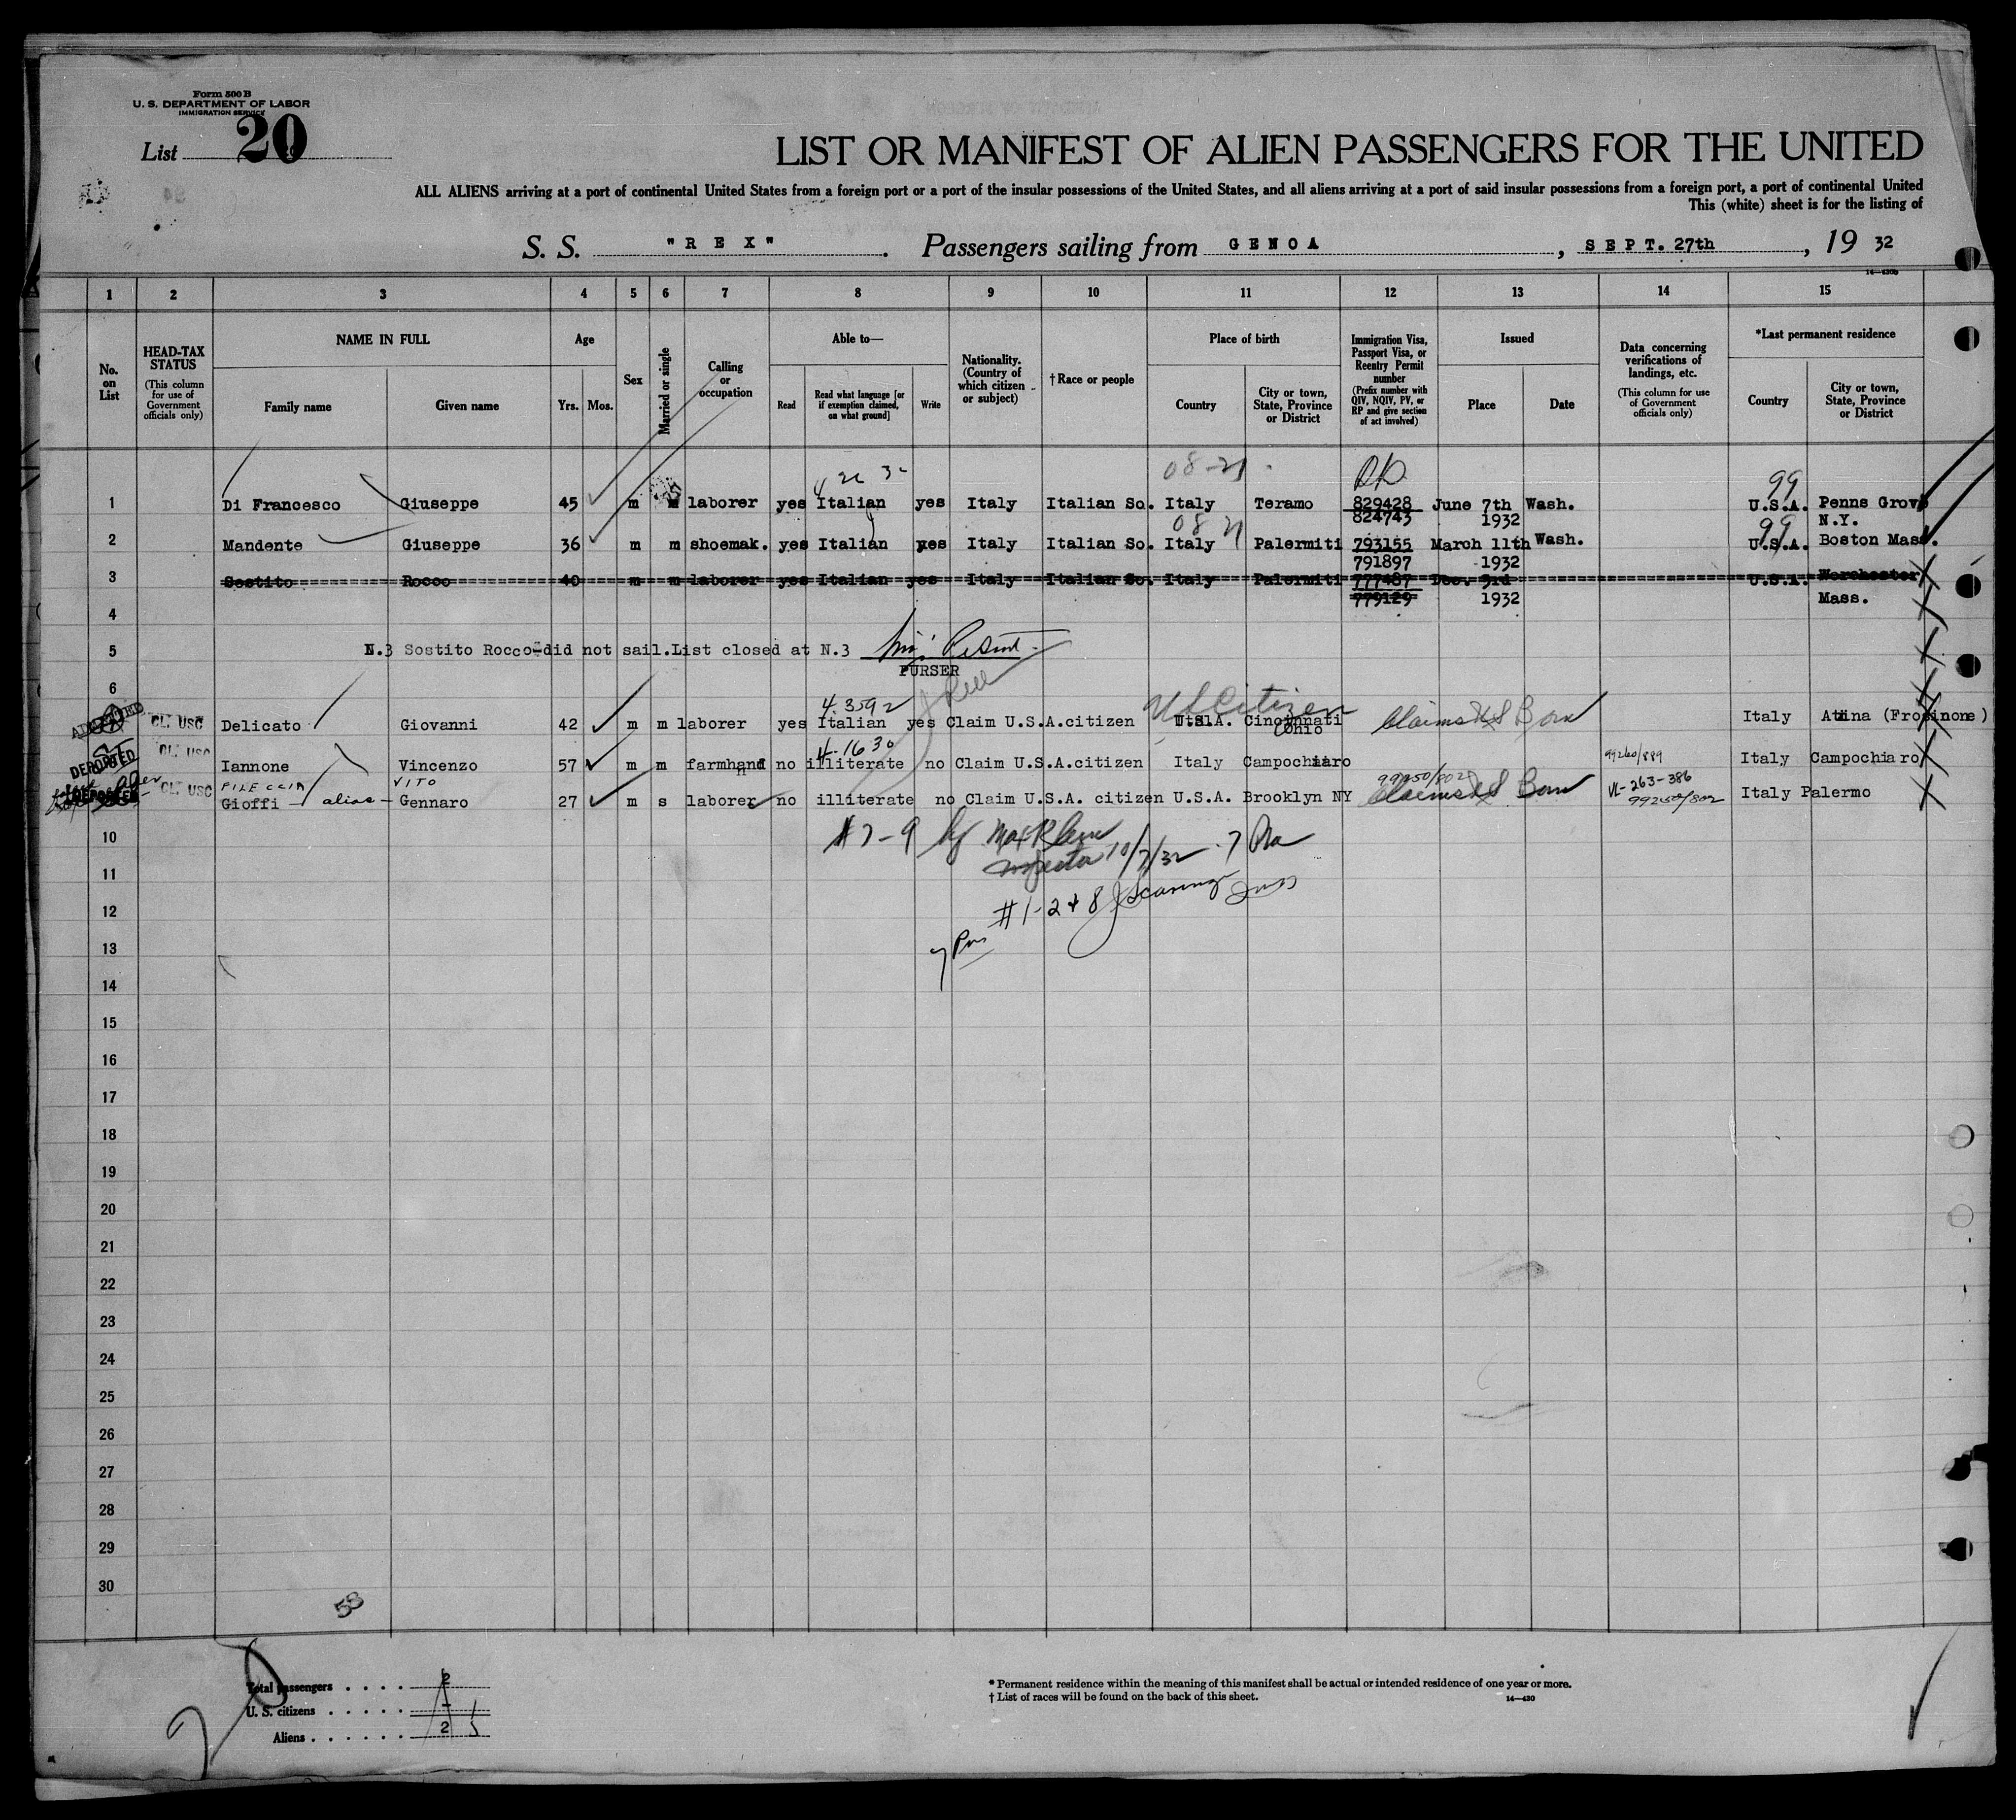 Form 500 B
U. S. DEPARTMENT OF LABOR
IMMIGRATION SERVICE
List 20
LIST OR MANIFEST OF ALIEN PASSENGERS FOR THE UNITED
ALL ALIENS arriving at a port of continental United States from a foreign port or a port of the insular possessions of the United States, and all aliens arriving at a port of said insular possessions from a foreign port, a port of continental United
This (white) sheet is for the listing of
S. S. "REX". Passengers sailing from GENOA, SEPT. 27th, 19 32
1 2 3 4 5 6 7 8 9 10 11 12 13 14 15
No. on List
HEAD-TAX STATUS (This column for use of Government officials only)
NAME IN FULL
Family name
Given name
Age
Yrs. Mos.
Sex
Married or single
Calling or occupation
Able to—
Read
Read what language [or if exemption claimed, on what ground]
Write
Nationality. (Country of which citizen or subject)
†Race or people
Place of birth
Country
City or town, State, Province or District
Immigration Visa, Passport Visa, or Reentry Permit number (Prefix number with QIV, NQIV, PV, or RP and give section of act involved)
Issued
Place
Date
Data concerning verifications of landings, etc. (This column for use of Government officials only)
*Last permanent residence
Country
City or town, State, Province or District
08-21
99
1 Di Francesco Giuseppe 45 m m laborer yes Italian yes Italy Italian So. Italy Teramo 829428 June 7th Wash. U.S.A. Penns Grove
824743 1932 N.Y.
08 21
99
2 Mandente Giuseppe 36 m m shoemak. yes Italian yes Italy Italian So. Italy Palermiti 793155 March 11th Wash. U.S.A. Boston Mass.
791897 1932
3 Sostito Rocco 40 m m laborer yes Italian yes Italy Italian So. Italy Palermiti 777487 Dec. 3rd U.S.A. Worchester
779129 1932 Mass.
4
5 N.3 Sostito Rocco-did not sail.List closed at N.3
PURSER
6
4.3592
US Citizen
CL. USC Delicato Giovanni 42 m m laborer yes Italian yes Claim U.S.A.citizen U.S.A. Cincinnati Ohio Claims US Born Italy Atina (Frosinone)
4-1630
DEPORTED CL. USC Iannone Vincenzo 57 m m farmhand no illiterate no Claim U.S.A.citizen Italy Campochiaro 99240/889 Italy Campochiaro
FILECCIA VITO
99250/802
DEPORTED CL. USC Gioffi alias Gennaro 27 m s laborer no illiterate no Claim U.S.A. citizen U.S.A. Brooklyn NY Claims US Born VL-263-386 99250/802 Italy Palermo
10 #7-9 by
Inspector 10/7/32
11
12 #1-2 & 8
13
14
15
16
17
18
19
20
21
22
23
24
25
26
27
28
29
30
58
Total passengers . . . . 2
U. S. citizens . . . . . -
Aliens . . . . . . 2 5
* Permanent residence within the meaning of this manifest shall be actual or intended residence of one year or more.
† List of races will be found on the back of this sheet. 14—430